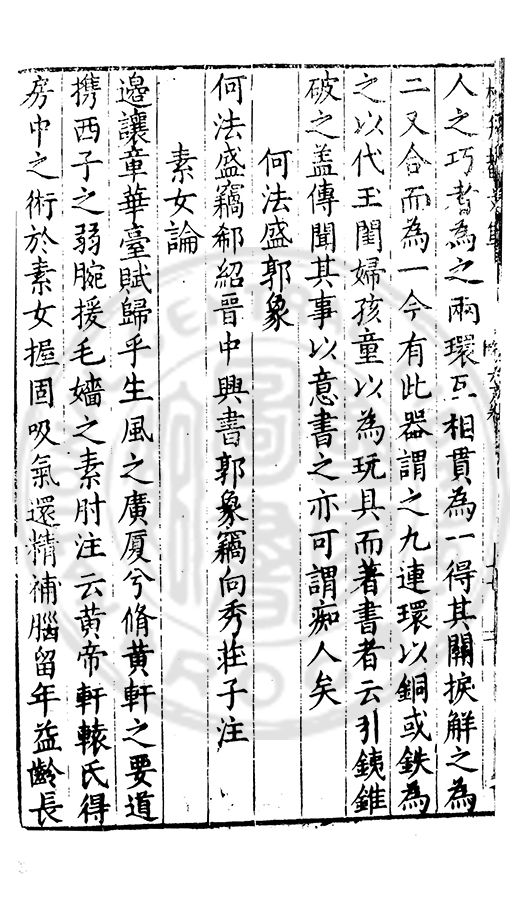 人之巧者為之兩環互相貫為一得其關捩解之為
二又合而為一今有此器謂之九連環以銅或鉄為
之以代玉閨婦孩童以為玩具而著書者云引銕錐
破之盖傳聞其事以意書之亦可謂痴人矣
何法盛郭象
何法盛竊郗紹晉中興書郭象竊向秀荘子注
素女論
邊讓章華臺賦歸乎生風之廣厦兮脩黄軒之要道
携西子之弱腕援毛嬙之素肘注云黄帝軒轅氏得
房中之術於素女握固吸氣還精補腦留年益齡長